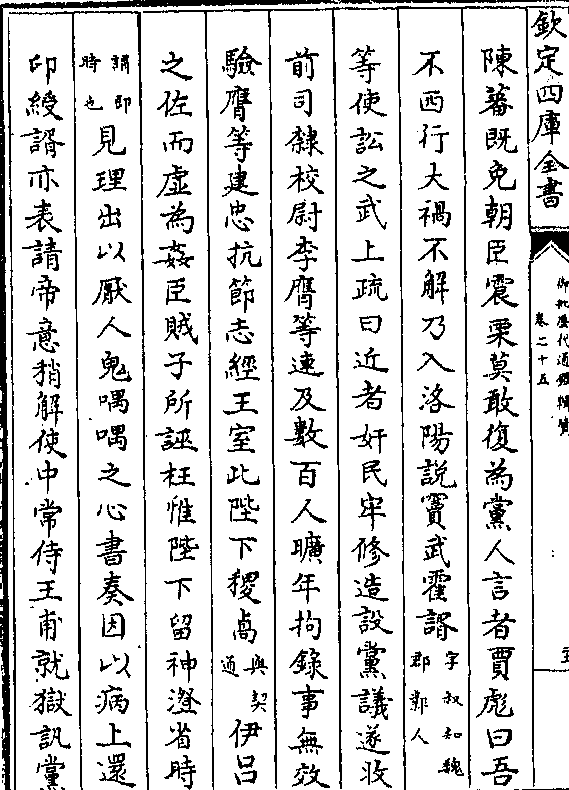 欽定四庫全書
御批歷代通鑑輯覽
卷二十五
陳蕃既免朝臣震栗莫敢復為黨人言者賈彪曰吾
不西行大禍不解乃入洛陽說竇武霍諝字叔知魏郡鄴人
等使訟之武上疏曰近者奸民牢修造設黨議遂收
前司隸校尉李膺等逮及數百人曠年拘錄事無效
驗膺等建忠抗節志經王室此陛下稷卨與契通伊呂
之佐而虛為姦臣賊子所誣枉惟陛下留神澄省時
謂即時也見理出以厭人鬼喁喁之心書奏因以病上還
印綬諝亦表請帝意稍解使中常侍王甫就獄訊黨